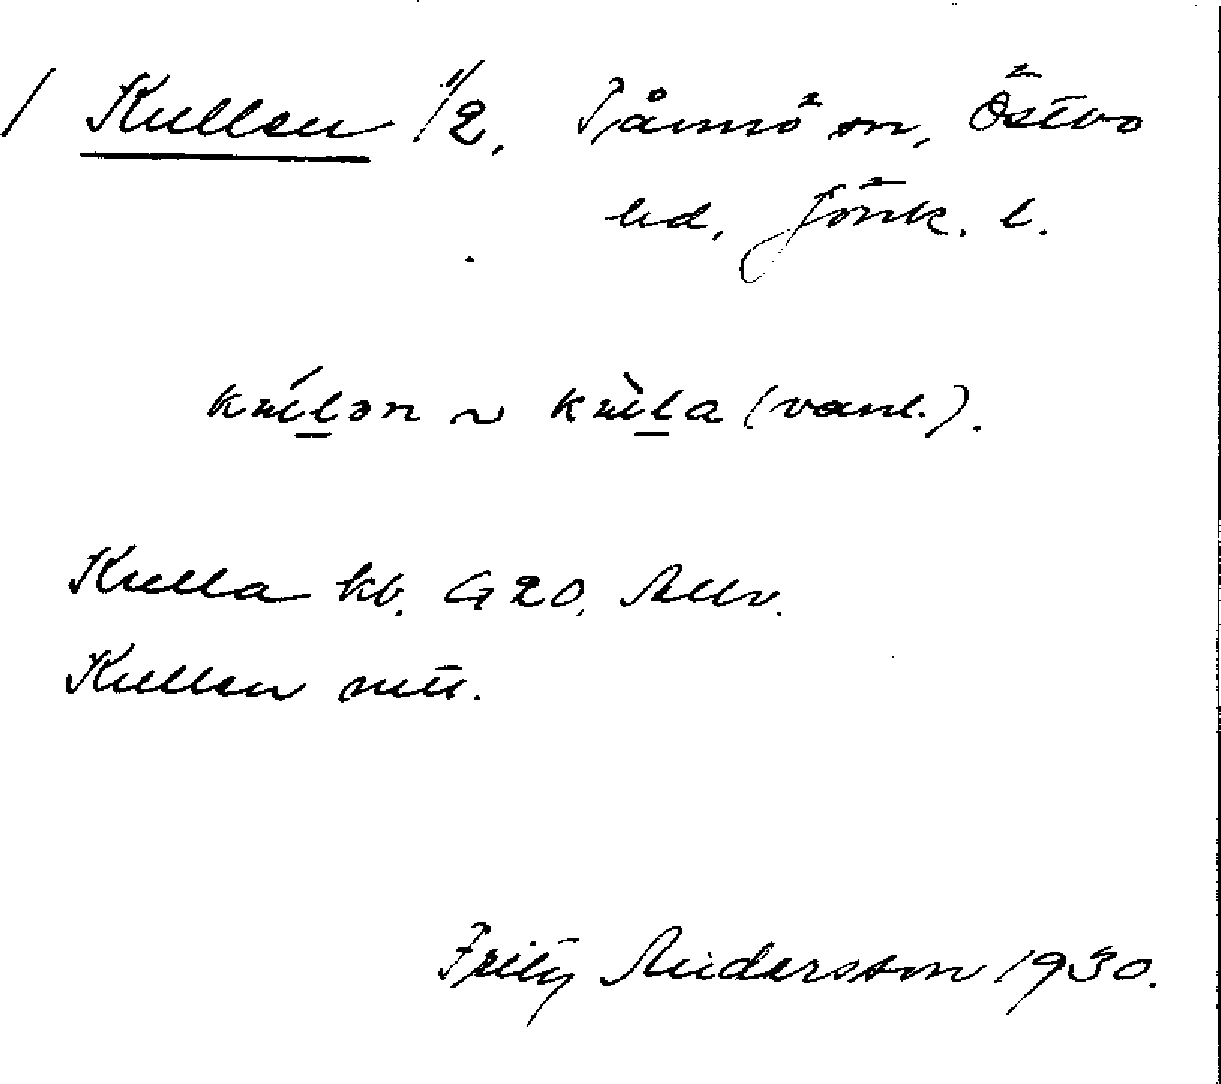 / Kullen 1/2, Tånnö sn, Östbo
hd, Jönk. l.
kuḻən ~ kuḻa (vanl.).
Kulla kb. G20. Allv.
Kullen mtl.
Fritz Andersson 1930.